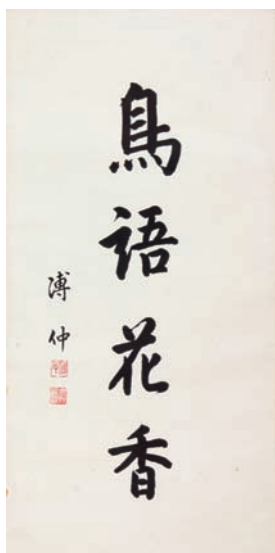 鳥語花香
溥仲